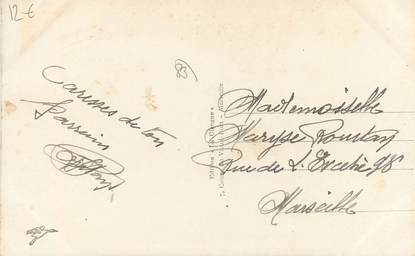 12-€
83
Caresses de ton
Parrain
Mademoiselle
Maryse Rourtay
Rue de L'Evêché 98
Marseille